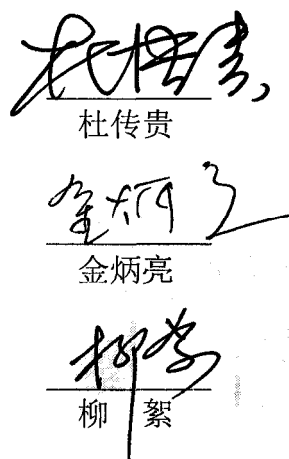 杜传贵
杜传贵
金炳亮
金炳亮
柳絮
柳 絮